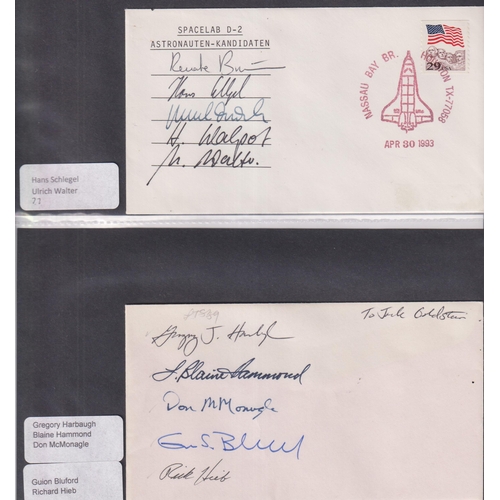 SPACELAB D-2
ASTRONAUTEN-KANDIDATEN
Renate Br
Hans Schlegel
H. Walpot
U. Walter
29
USA
NASSAU BAY BR. HOUSTON TX-77058
APR 30 1993
Hans Schlegel
Ulrich Walter
??
Gregory J. Harbaugh
L. Blaine Hammond
Don McMonagle
Guion S. Bluford
Rick Hieb
To Jack Goldstein
Gregory Harbaugh
Blaine Hammond
Don McMonagle
Guion Bluford
Richard Hieb